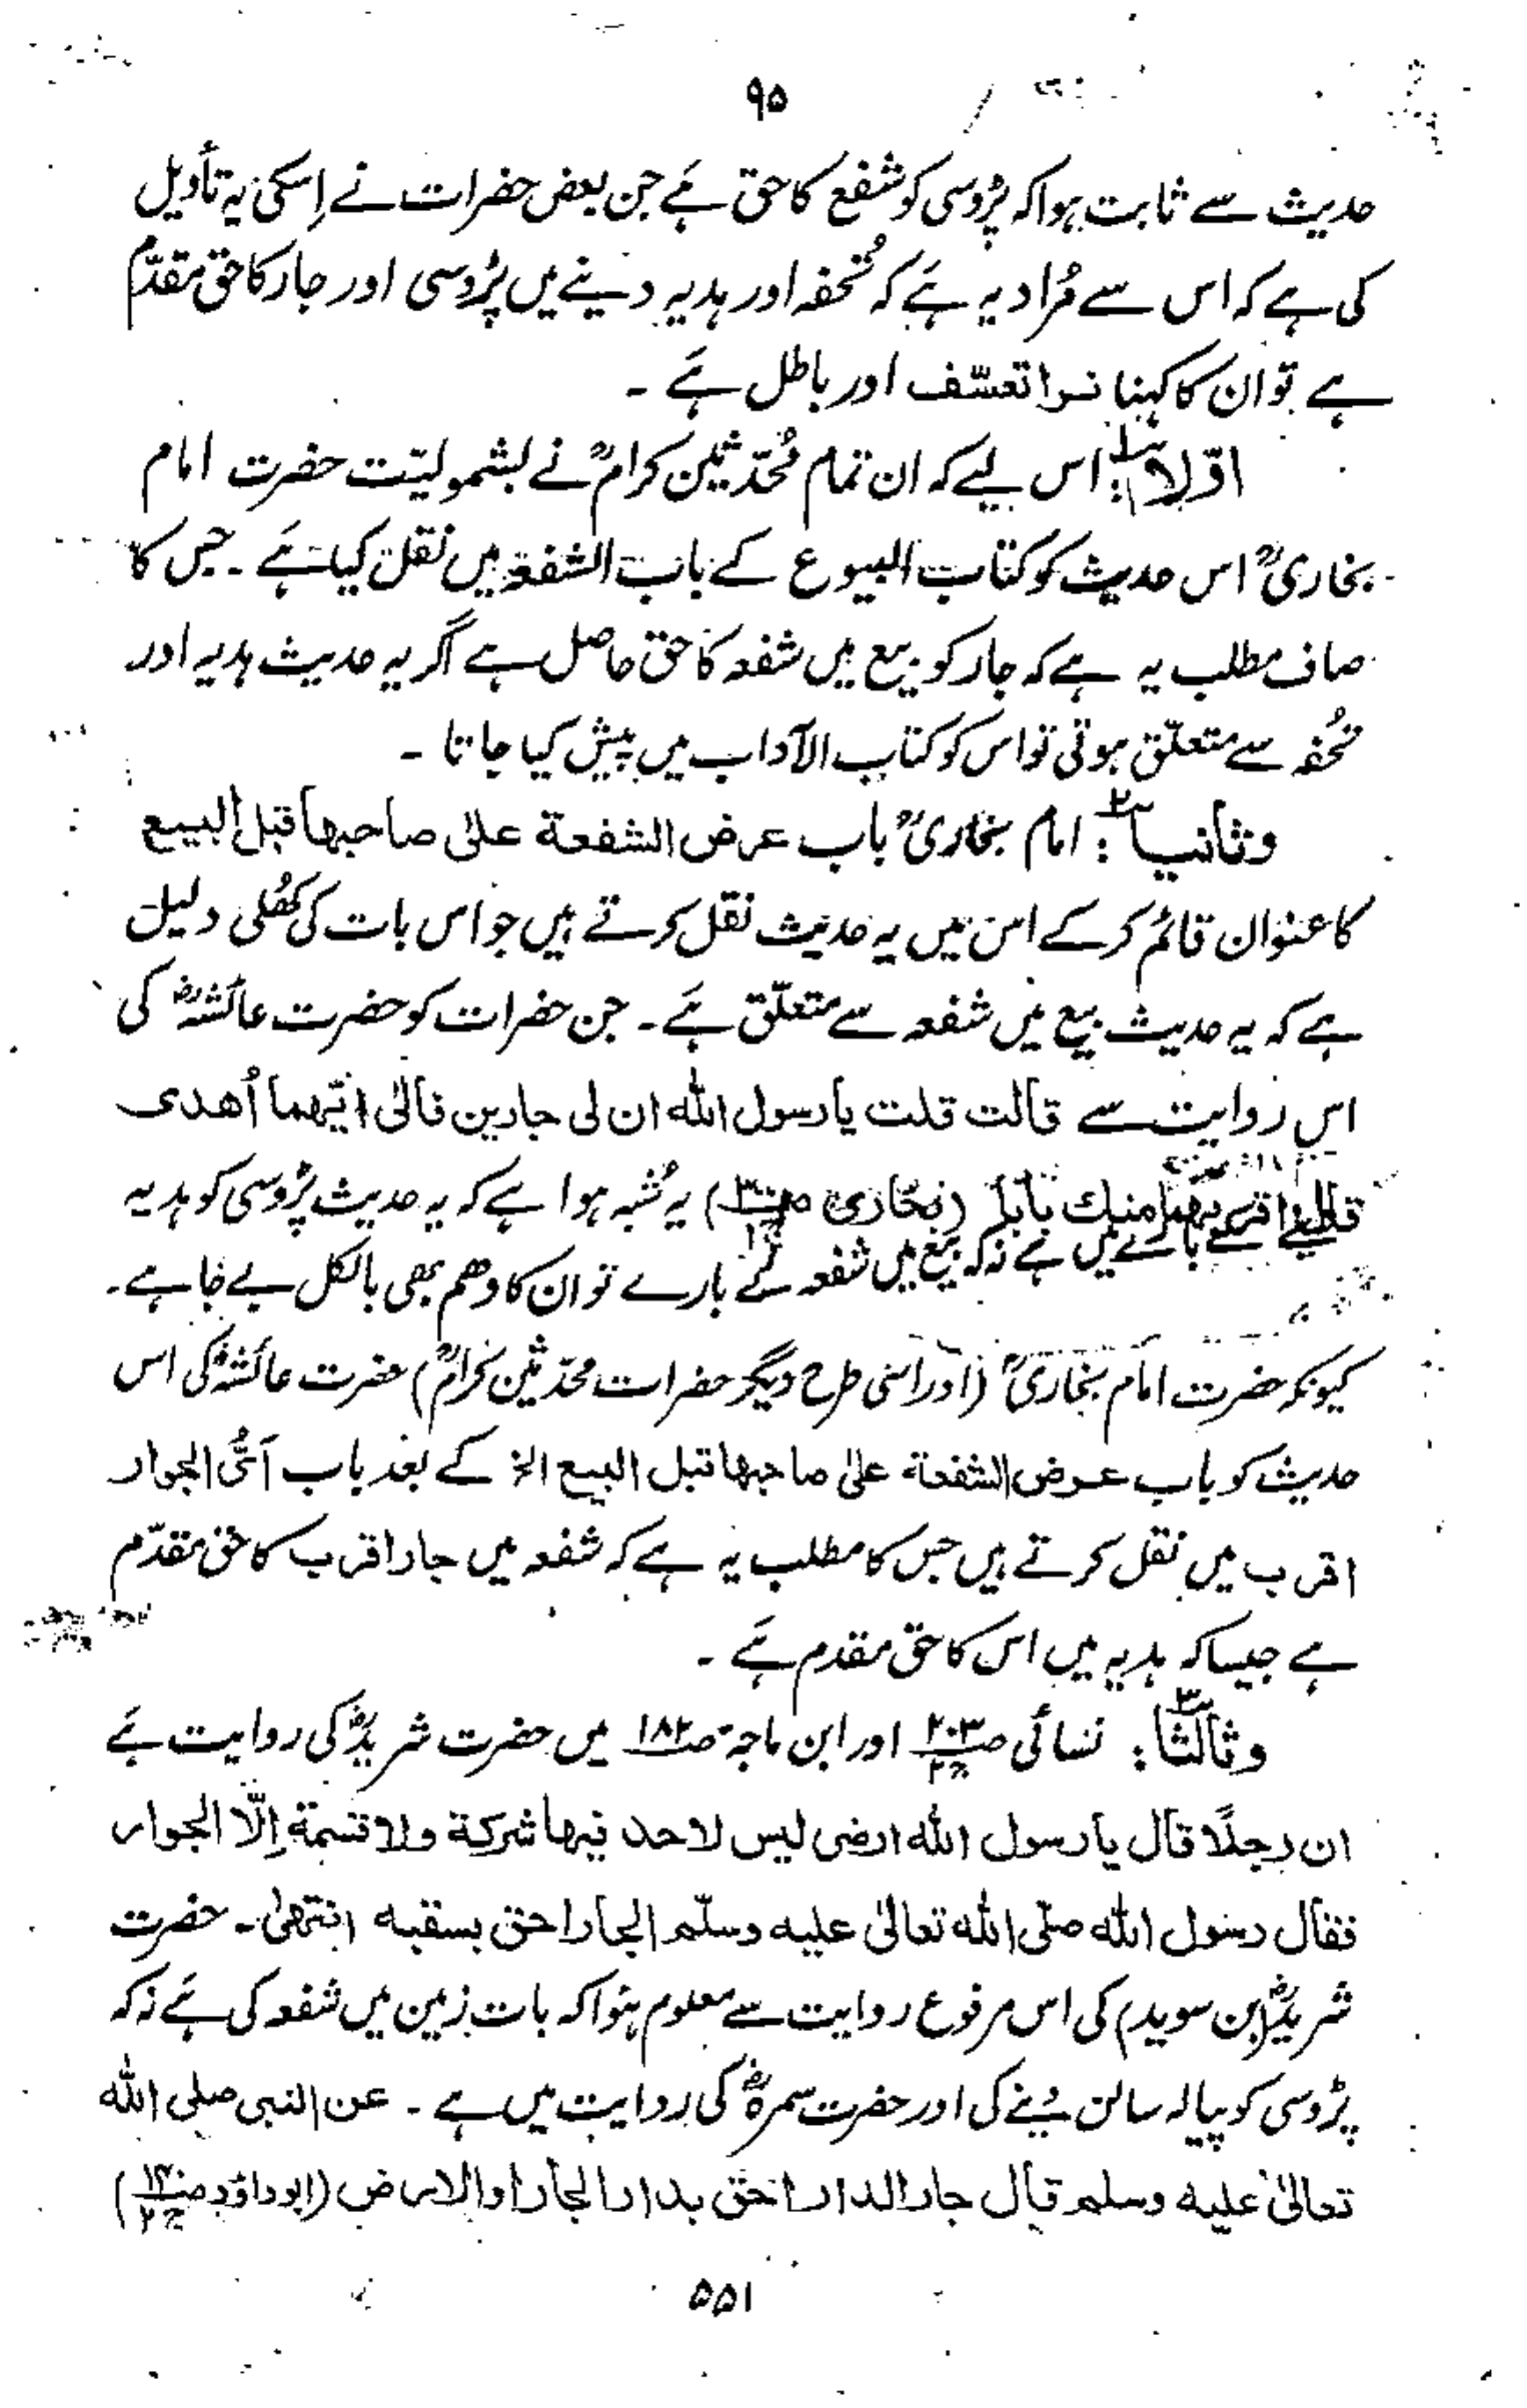 ۹۵
حدیث سے ثابت ہوا کہ پڑوسی کو شفع کا حق ہے جن بعض حضرات نے اِسکی یہ تأویل
کی ہے کہ اس سے مُراد یہ ہے کہ تُحفہ اور ہدیہ دینے میں پڑوسی اور جار کا حق مقدّم
ہے تو ان کا کہنا نرا تعسّف اور باطل ہے ۔
اوّلاً ۱؎: اس لیے کہ ان تمام مُحدّثین کرامؒ نے بشمولیّت حضرت امام
بخاریؒ اس حدیث کو کتاب البیوع کے باب الشفعۃ میں نقل کیا ہے ۔ جس کا
صاف مطلب یہ ہے کہ جار کو بیع میں شفعہ کا حق حاصل ہے اگر یہ حدیث ہدیہ اور
تحُفہ سے متعلّق ہوتی تو اس کو کتاب الآداب میں پیش کیا جاتا ۔
وثانیاً ۲؎: امام بخاریؒ باب عرض الشفعة علیٰ صاحبها قبل البیع
کا عنوان قائم کر کے اس میں یہ حدیث نقل کرتے ہیں جو اس بات کی کھُلی دلیل
ہے کہ یہ حدیث بیع میں شفعہ سے متعلّق ہے ۔ جن حضرات کو حضرت عائشہؓ کی
اس روایت سے قالت قلت یا رسول اللہ ان لی جارین فالیٰ ایّهما اُهدی
قال الیٰ اقربهما منك بابا (بخاری ص۳۰۰ ج۱) یہ شُبہ ہوا ہے کہ یہ حدیث پڑوسی کو ہدیہ
کے بارے میں ہے نہ کہ بیع میں شفعہ کے بارے تو ان کا وھم بھی بالکل بے جا ہے ۔
کیونکہ حضرت امام بخاریؒ (اور اسی طرح دیگر حضرات محدّثین کرامؒ) حضرت عائشہؓ کی اس
حدیث کو باب عرض الشفعة علیٰ صاحبها قبل البیع الخ کے بعد باب اَیُّ الجوار
اقرب میں نقل کرتے ہیں جس کا مطلب یہ ہے کہ شفعہ میں جار اقرب کا حق مقدّم
ہے جیسا کہ ہدیہ میں اس کا حق مقدم ہے ۔
وثالثاً ۳؎: نسائی ص۲۰۳ ج۲ اور ابن ماجہ ص۱۸۲ میں حضرت شریدؓ کی روایت ہے
ان رجلاً قال یا رسول اللہ ارضی لیس لاحد فیها شرکة ولا قسمة اِلّا الجوار
فقال رسول اللہ صلّی اللہ تعالیٰ علیه وسلّم الجار احق بسقبه انتهیٰ ۔ حضرت
شریدؓ (بن سوید) کی اس مرفوع روایت سے معلوم ہُوا کہ بات زمین میں شفعہ کی ہے نہ کہ
پڑوسی کو پیالہ سالن دینے کی اور حضرت سمرہؓ کی روایت میں ہے ۔ عن النبی صلی اللہ
تعالیٰ علیه وسلم قال جار الدار احق بدار الجار او الارض (ابو داؤد ص۱۴۰ ج۲)
۵۵۱